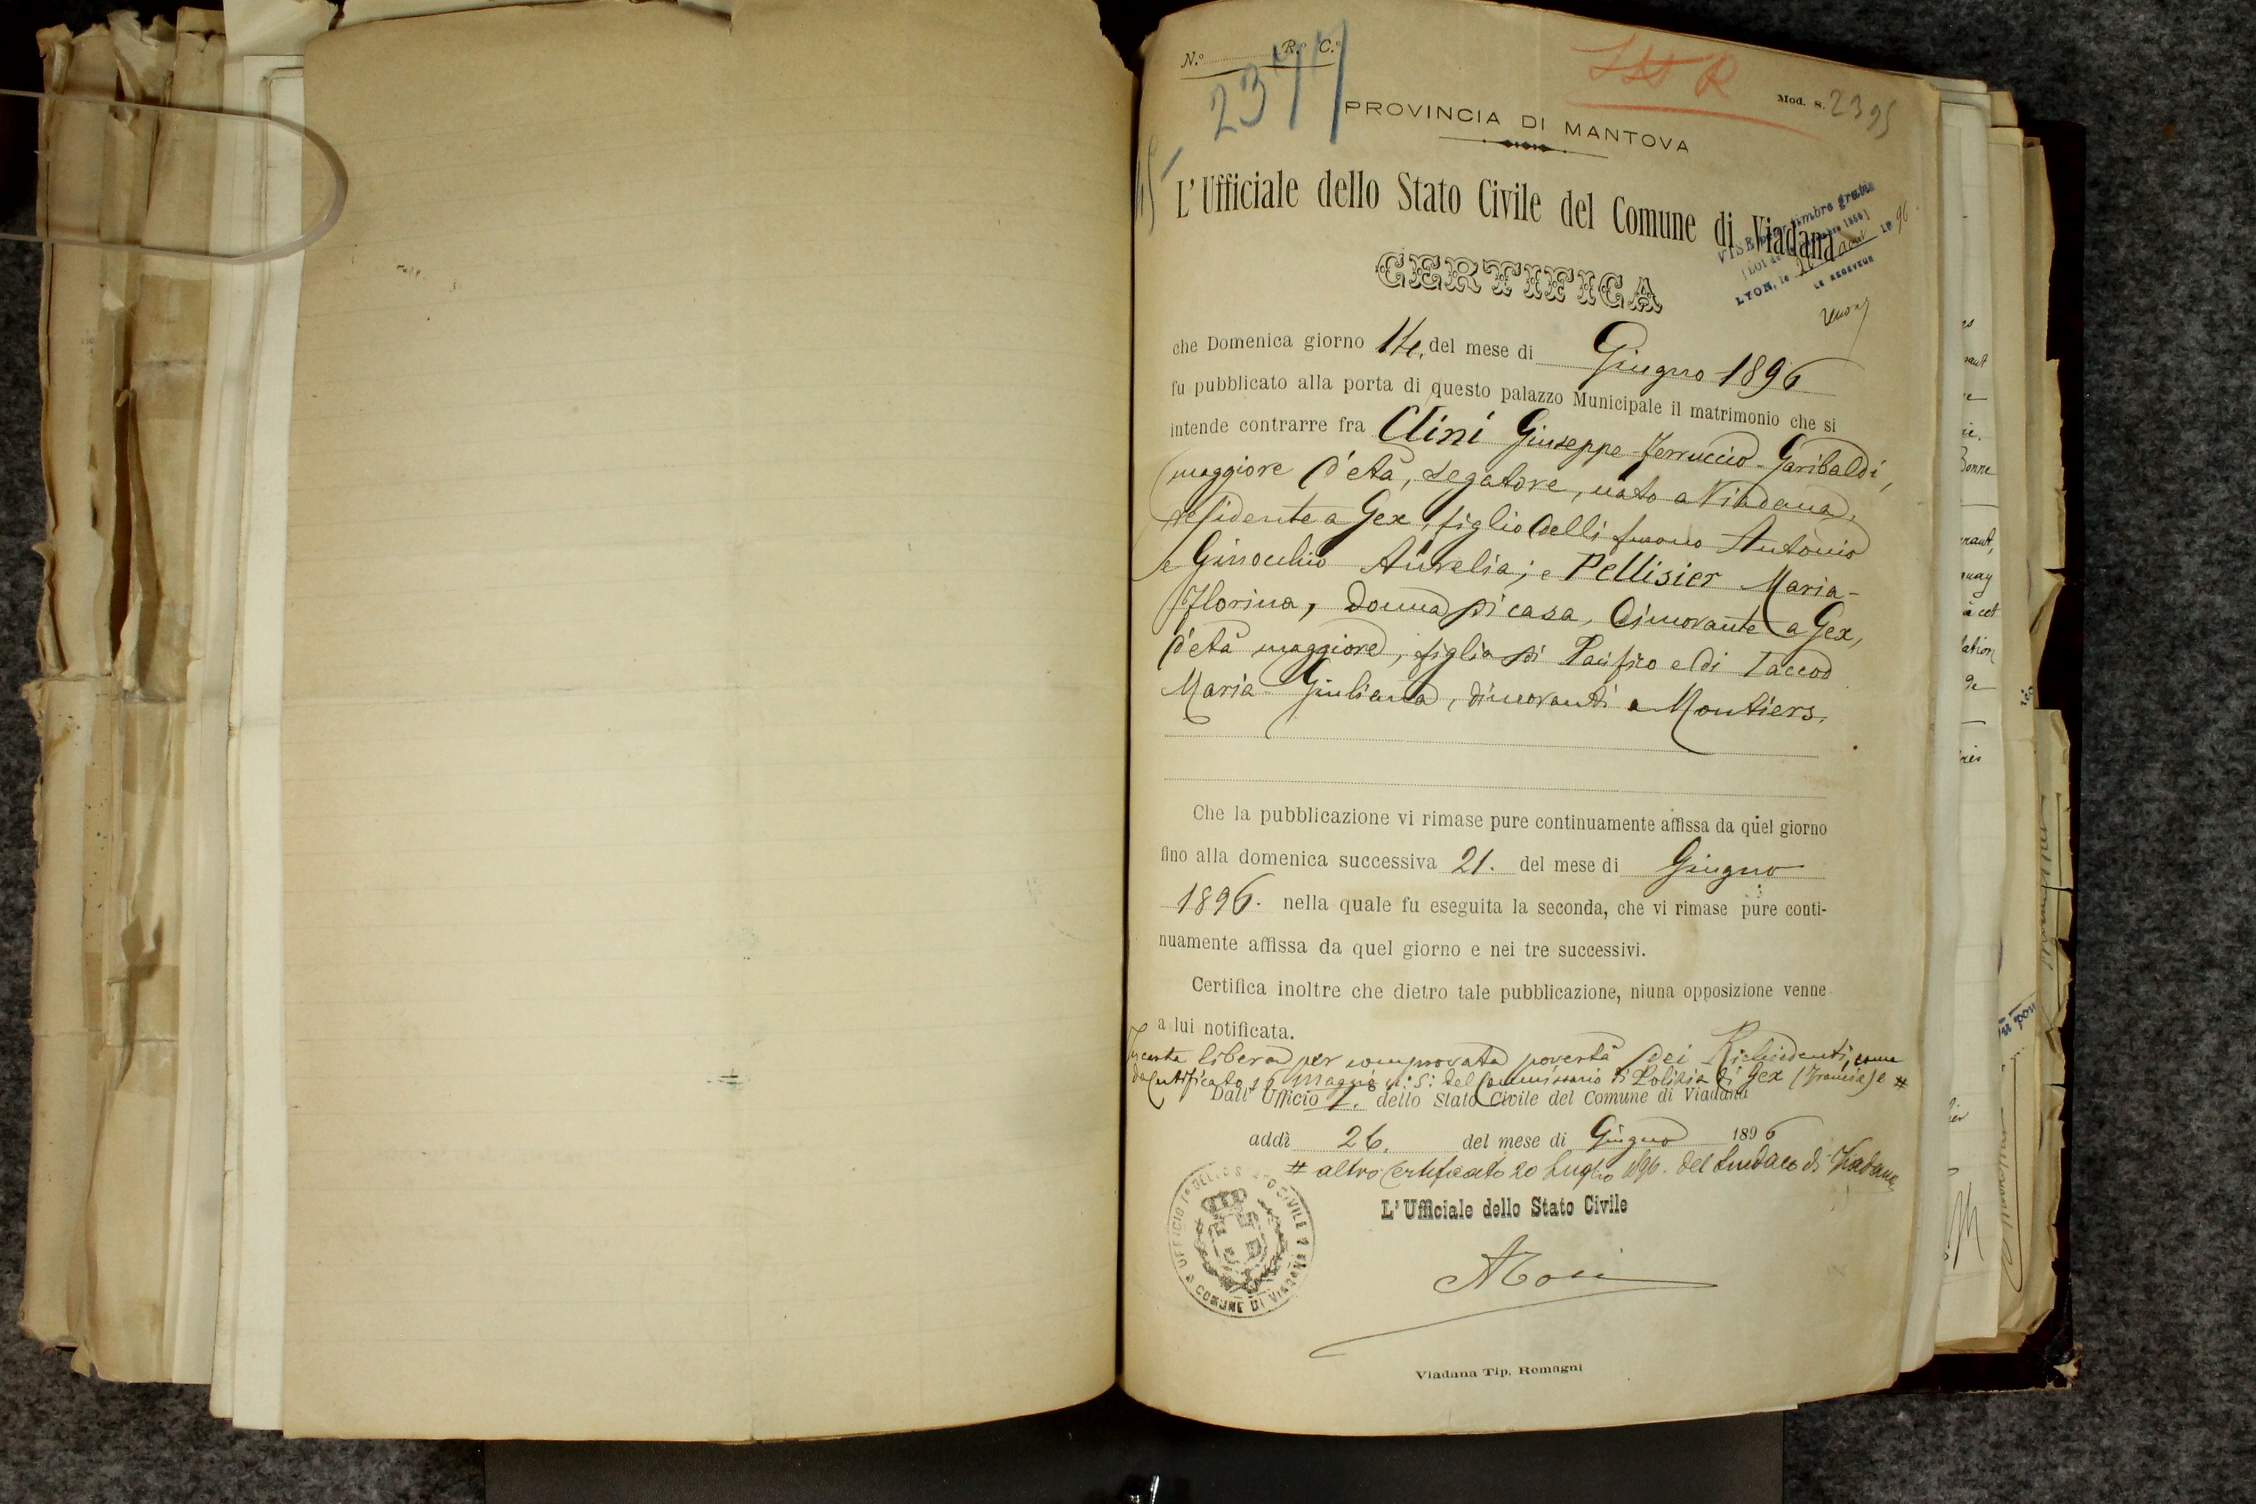 N.º R. C.º
2377
Mod. 8. 2395
PROVINCIA DI MANTOVA
L'Ufficiale dello Stato Civile del Comune di Viadana
VISÉ timbre gratis
LYON, le août 1896
LE RECEVEUR
CERTIFICA
che Domenica giorno 14. del mese di Giugno 1896
fu pubblicato alla porta di questo palazzo Municipale il matrimonio che si
intende contrarre fra Clini Giuseppe-Ferruccio-Garibaldi,
maggiore d'età, segatore, nato a Viadana,
residente a Gex, figlio delli furono Antonio
e Ginocchio Aurelia; e Pellisier Maria-
Florina, donna di casa, dimorante a Gex,
d'età maggiore, figlia di Pacifico e di Taccod
Maria-Giuliana, dimoranti a Moutiers.
Che la pubblicazione vi rimase pure continuamente affissa da quel giorno
fino alla domenica successiva 21. del mese di Giugno
1896. nella quale fu eseguita la seconda, che vi rimase pure conti-
nuamente affissa da quel giorno e nei tre successivi.
Certifica inoltre che dietro tale pubblicazione, niuna opposizione venne
a lui notificata.
In carta libera per comprovata povertà dei Richiedenti, come
da Certificato 16 Maggio del Commissario di Polizia di Gex (Francia) e #
Dall' Ufficio 1. dello Stato Civile del Comune di Viadana
addì 26. del mese di Giugno 1896
# altro Certificato 20 Luglio 1896. del Sindaco di Viadana
L'Ufficiale dello Stato Civile
UFFICIO 1º DELLO STATO CIVILE
COMUNE DI VIADANA
Viadana Tip. Remagni